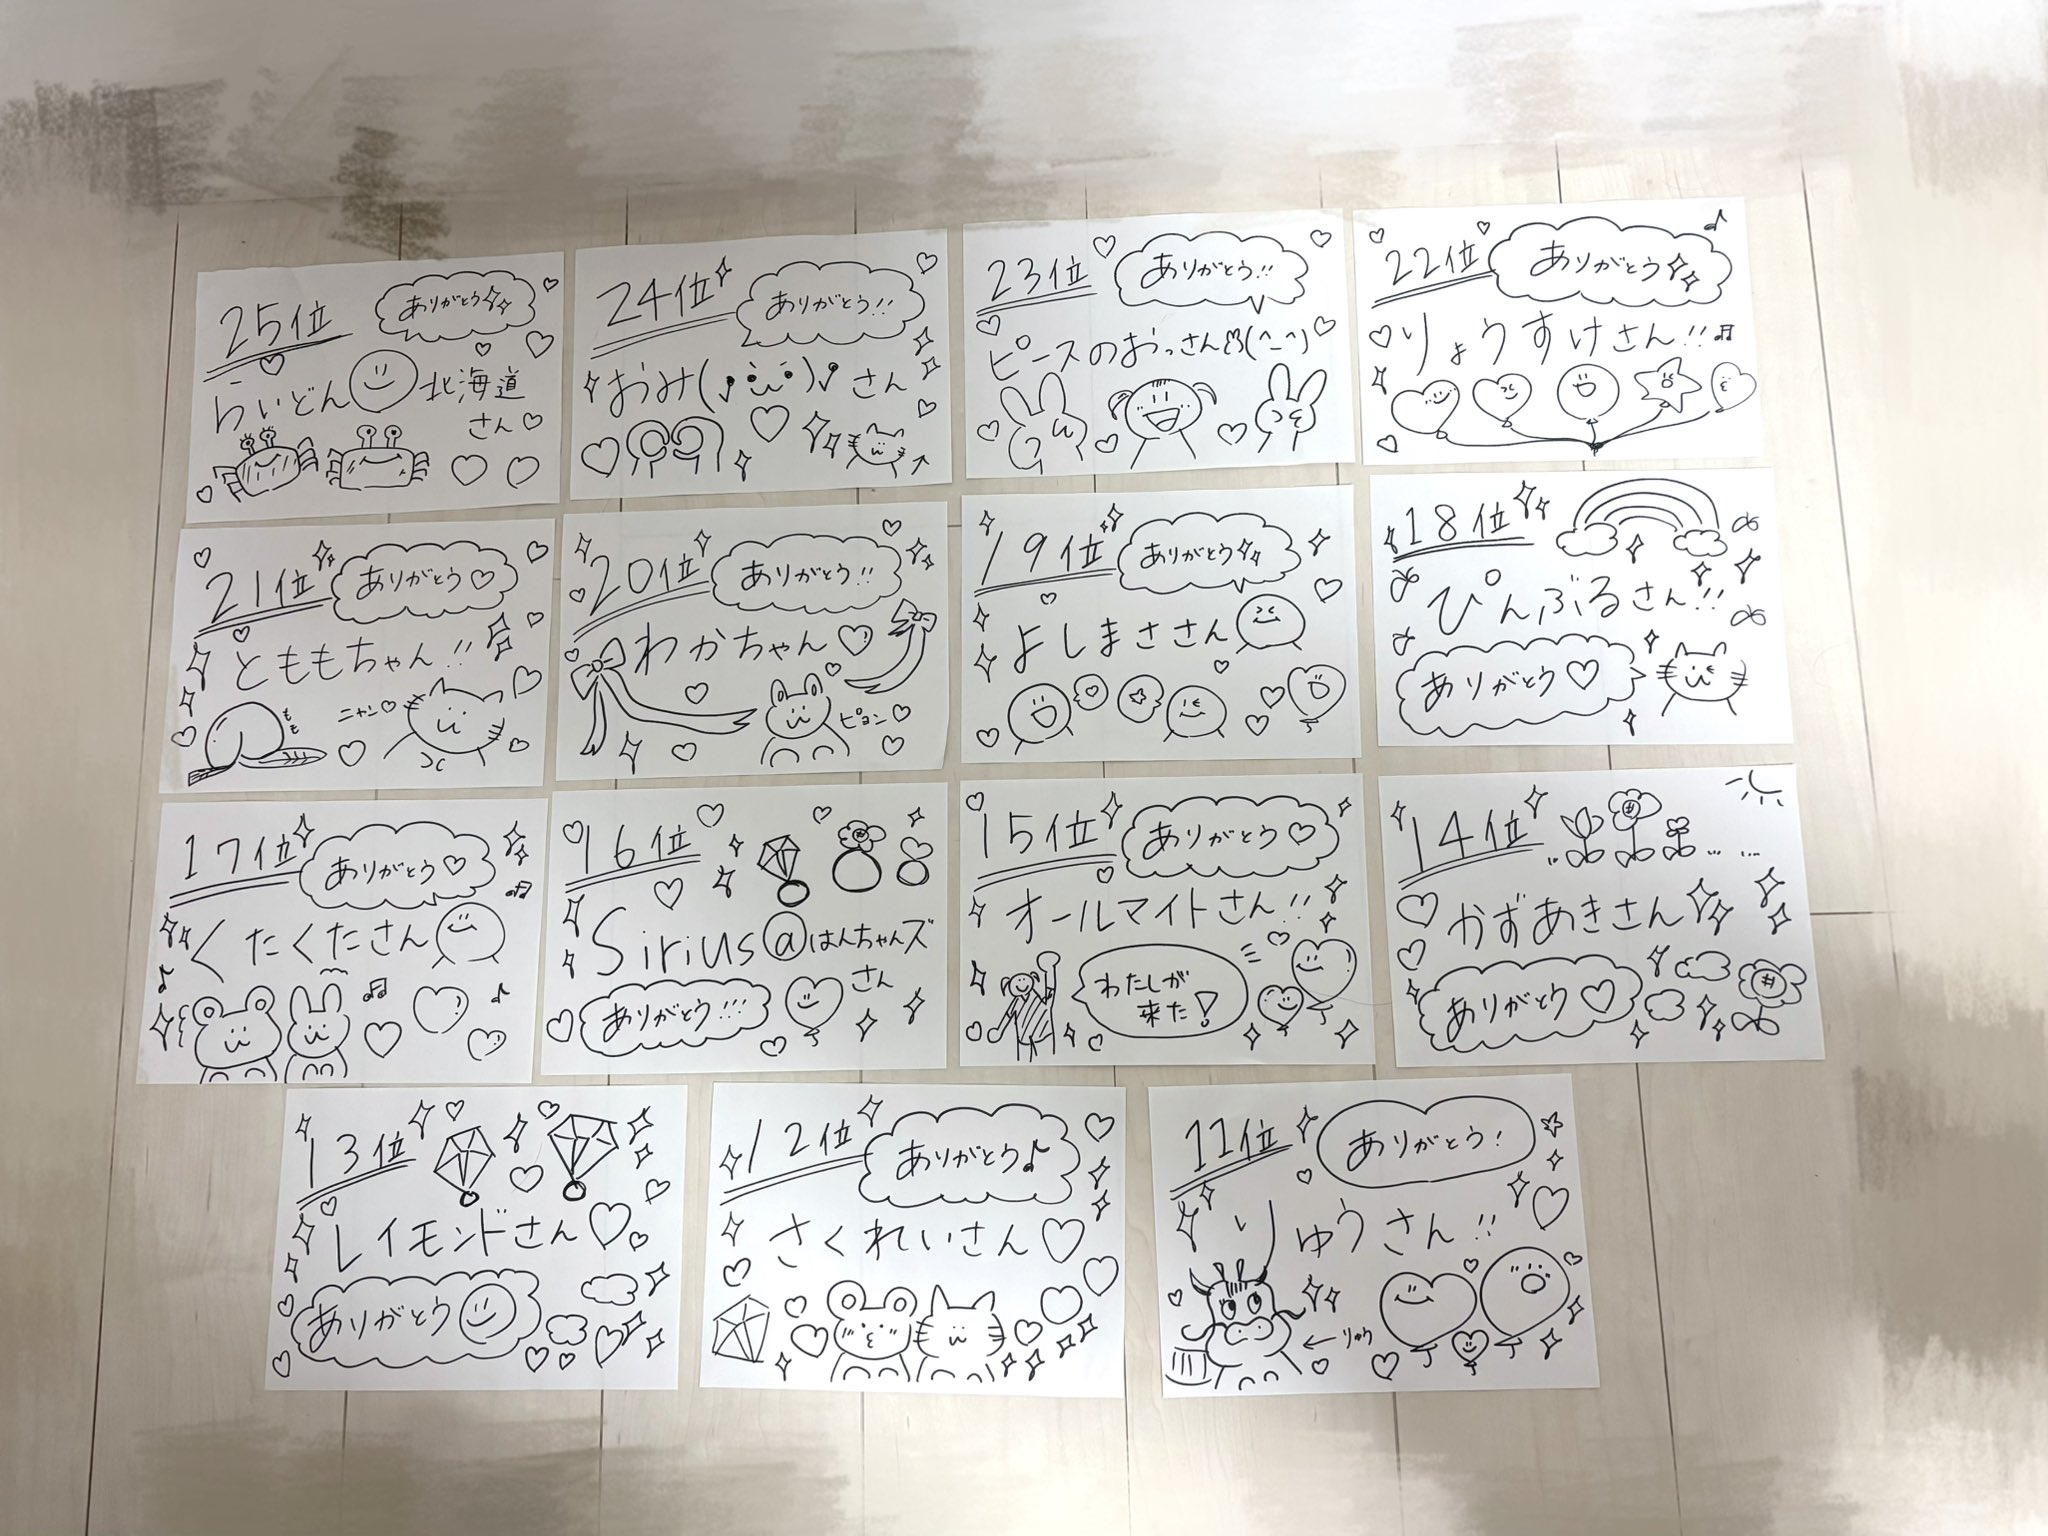 25位
ありがとう
らいどん
北海道
さん
24位
ありがとう!!
おみ(♪•ω•)♪さん
23位
ありがとう!!
ピースのおっさん(^-^)
22位
ありがとう
りょうすけさん!!
21位
ありがとう♡
とももちゃん!!
もも
ニャン♡
20位
ありがとう!!
わかちゃん♡
ピョン♡
19位
ありがとう
よしまささん
18位
ぴんぶるさん!!
ありがとう♡
17位
ありがとう♡
くたくたさん
16位
Sirius@はんちゃんズ
さん
ありがとう!!!
15位
ありがとう♡
オールマイトさん!!
わたしが
来た!
14位
かずあきさん
ありがとう♡
13位
レイモンドさん♡
ありがとう
12位
ありがとう♪
さくれいさん♡
11位
ありがとう!
りゅうさん!!
←りゅう